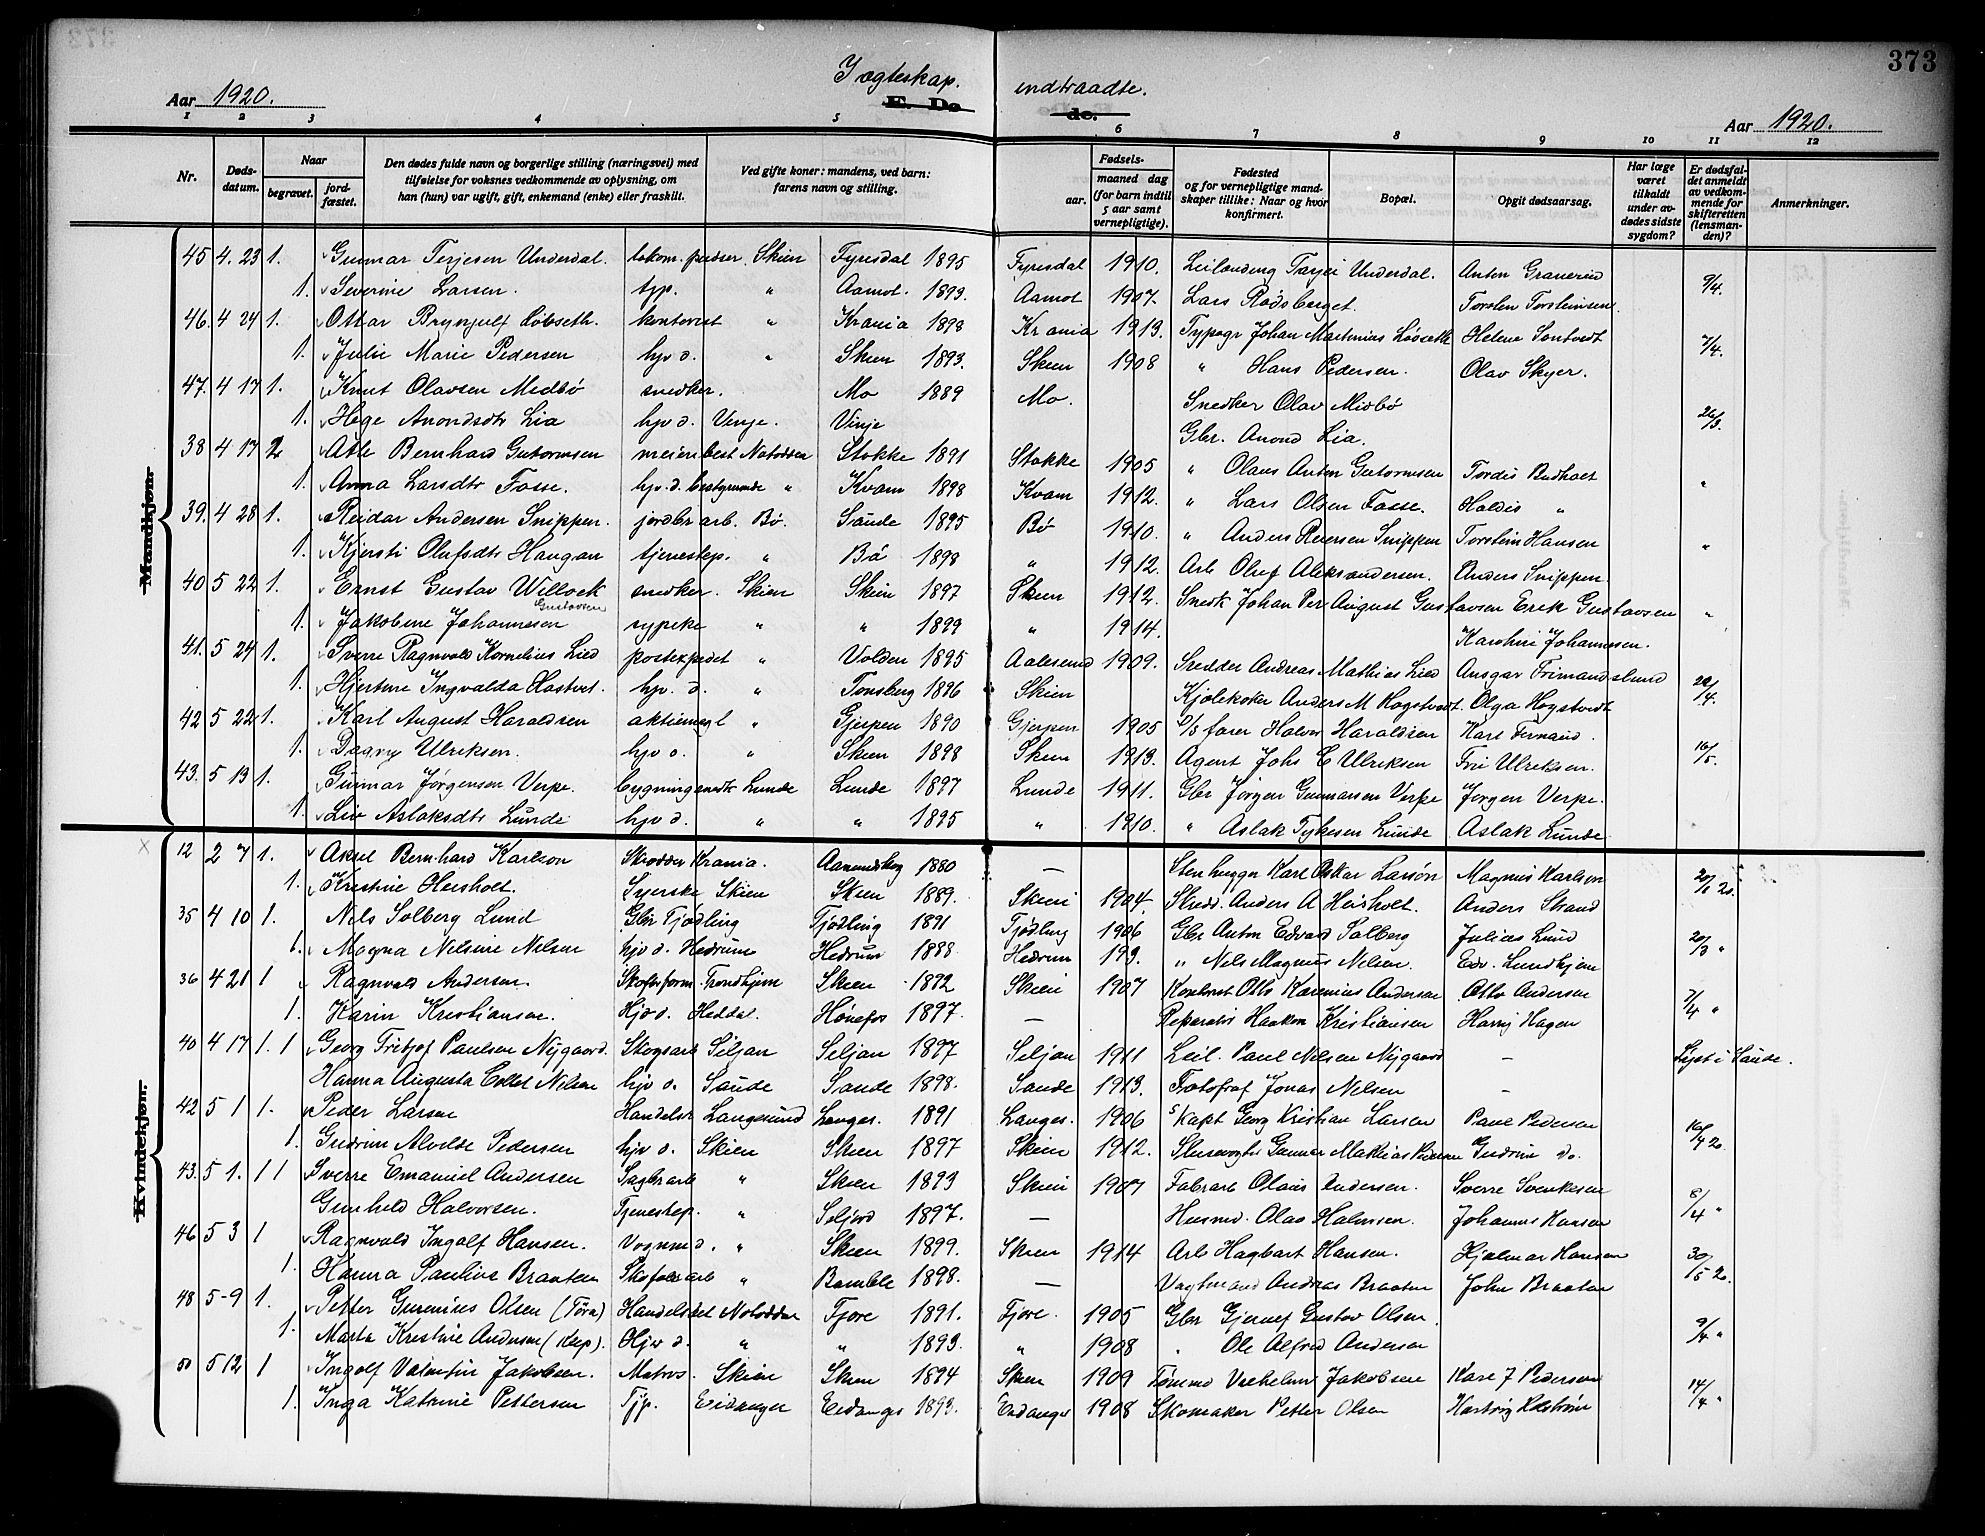 373
I ægteskap indtraadte.
Aar 1920. E. Dø de. Aar 1920.
1 2 3 4 5 6 7 8 9 10 11 12
Nr. Døds-datum. Naar begravet. jord-fæstet. Den dødes fulde navn og borgerlige stilling (næringsvei) med tilføielse for voksnes vedkommende av oplysning, om han (hun) var ugift, gift, enkemand (enke) eller fraskilt. Ved gifte koner: mandens, ved barn: farens navn og stilling. Fødsels- aar. maaned dag (for barn indtil 5 aar samt vernepligtige). Fødested og for vernepligtige mand-skaper tillike: Naar og hvor konfirmert. Bopæl. Opgit dødsaarsag. Har læge været tilkaldt under av-dødes sidste sygdom? Er dødsfal-det anmeldt av vedkom-mende for skifteretten (lensman-den)? Anmerkninger.
Mandkjøn.
45 4. 23 1. Gunnar Terjesen Underdal. Skien Fyresdal 1895 Fyresdal 1910. Leilending Tarjei Underdal. Anton Graverud 9/4.
1. Severine Larsen. tjp. " Aamot. 1893. Aamot 1907. Lars Rødsberget. Torsten Torsteinsen.
46. 4 24 1. Ottar Brynjulf Løbseth. kontorist " Krania 1898 Krania 1913. Typogr Johan Martinius Løbseth Helene Sontvedt 7/4.
1. Julie Marie Pedersen hjv d. " Skien 1893. Skien 1908 " Hans Pedersen. Olav Skyer.
47. 4 17 1. Knut Olavsen Medbö snedker. Mo 1889 Mo. Snedker Olav Midbö 26/3.
1. Hege Anondsdtr Lia hjv d. Vinje. Vinje Gbr. Anond Lia.
38 4 17 2 Atle Bernhard Gutormsen meieribest Notodden Stokke 1891 Stokke 1905 " Olaus Anton Gutormsen Tordis Budhoet "
1. Anna Larsdtr Fosse. hjv. d. bestyrende " Kvam 1898 Kvam 1912. " Lars Olsen Fosse. Haldis "
39. 4 28 1. Reidar Andersen Snippen. jordbr arb. Bø. Saude 1895 Bø 1910. " Anders Reiersen Snippen Torstein Hansen "
1. Kjersti Olufsdtr Haugan tjenestep. " Bø 1898 " 1912. Arb Oluf Aleksandersen. Anders Snippen.
40 5 22 1. Ernst Gustav Willock Gustavsen snedker. Skien Skien 1897 Skien 1912. Snedk Johan Per August Gustavsen Erik Gustavsen "
1. Jakobine Johannesen sypike " " 1899 " 1914. Karoline Johannesen.
41. 5 24 1. Sverre Ragnvald Kornelius Lied postexpedit " Volden 1895 Aalesund 1909. Andreas Mathias Lied Ansgar Frimandslund 22/4.
1. Hjertine Ingvalda Hastvet. hjv. d. " Tønsberg 1896 Skien Anders M Hogstvedt Olga Hogstvedt
42 5 22 1. Karl August Haraldsen " Gjerpen 1890 Gjerpen 1905 Halvor Haraldsen Karl Fernand.
1. Dagny Ulriksen. hjv d. " Skien 1898 Skien 1913. Agent Johs E Ulriksen Fru Ulriksen. 16/5.
43. 5 13 1. Gunnar Jørgensen Verpe. bygningsnedk Lunde Lunde 1897 Lunde 1911. Gbr Jørgen Gunnarsen Verpe Jørgen Verpe.
1. Liv Aslaksdtr Lunde hjv d. " " 1895 " 1910. " Aslak Lunde Aslak Lunde
Kvindekjøn.
12 2 7 1. Aksel Bernhard Karlson Skrædder Krania. 1880 — Stenhugger Karl Oskar Larson Magnus Karlson 20/1 20.
1. Kristine Heisholt. Syerske Skien Skien 1889. Skien 1904. Skredd. Anders A Heisholt. Anders Strand
35 4 10 1. Nils Solberg Lund Gbr Tjødling Tjødling 1891 Tjødling 1906 Gbr Anton Edvard Solberg Julius Lund 20/3 "
1. Magna Nelsine Nelsen hjv d. Hedrum Hedrum 1888 Hedrum 19 3. " Nels Magnus Nelsen. Edv. Lundhjem
36 4 21 1 Ragnvald Andersen. Skoforform. Trondhjem Skien 1892 Skien 1907 Otto Karenius Andersen Otto Andersen 7/4 "
1. Karin Kristiansen. Hjv d. Heddal. Hønefos 1897. — Reparatør Haakon Kristiansen Harry Hagen
40 4 17 1. 1 Georg Fritjof Paulsen Nygaard. Skogsarb Siljan Siljan 1897 Siljan 1911 Leil. Paul Nilsen Nygaard — Lyst i Saude.
Hanna Augusta Collet Nilsen hjv d. Saude Sande 1898. Sande 1913. Fotograf Jonas Nilsen —
42 5 1 1. Peder Larsen Handelsr Langesund Langes. 1891 Langes. 1906 Skapt Georg Kristian Larsen Paul Pedersen 16/4 20.
1. Gudrun Alvilde Pedersen hjv d. Skien Skien 1897 Skien 1912. Slusevogter Gunnar Mathias Pedersen Gudrun do.
43. 5 1. 1 1 Sverre Emanuel Andersen Sagbr arb " Skien 1893 Skien 1907 Fabrarb Olaus Andersen. Sverre Svenkesen 8/4 "
Gunhild Halvorsen. Tjenestep. " Seljord 1897. — Husmd. Olav Halvorsen. Johannes Hansen
46 5 3 1 Ragnvald Ingolf Hansen. Vognmd. " Skien 1899. Skien 1914 Arb Hagbart Hansen. Hjalmar Hansen 30/5 20.
1. Hanna Pauline Braaten Skofabarb " Bamble 1898. — Vagtmand Andreas Braaten John Braaten
48 5-9 1. Petter Gurenius Olsen (Töra) Handelsbet Notodden Tjøre 1891. Tjøre. 1905 Gbr Gustav Olsen. 9/4 "
1. Marta Kristine Andersen Hjv d. " " 1893. " 1908 " Ole Alfred Andersen
50 5 12 1 Ingolf Valentin Jakobsen. Matros. Skien Skien 1894 Skien 1909 Tømmd Vilhelm Jakobsen Kare J Pedersen 14/4 "
1. Inga Katrine Pettersen Tjp. Eidanger Eidanger 1893. Eidanger 1908 Skomaker Petter Olsen Hartvig